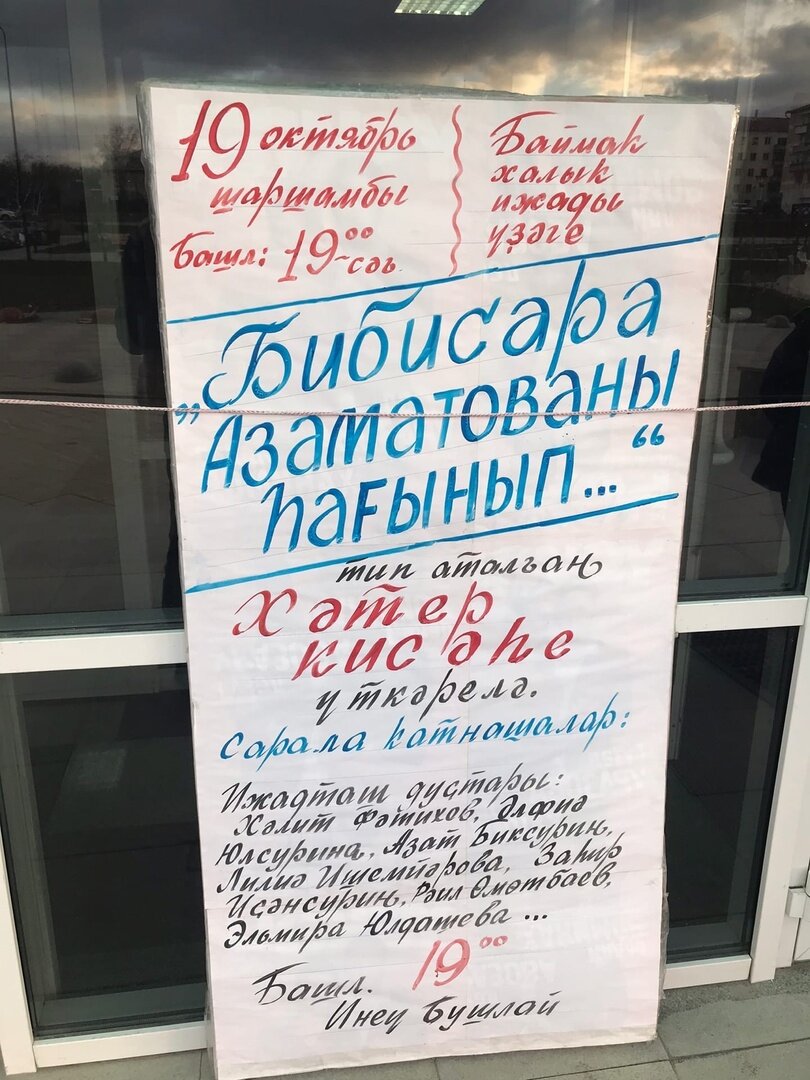 19 октябрь
шаршамбы
Башл: 19⁰⁰-сәғ
Баймаҡ
халыҡ
ижады
үҙәге
„Бибисара
Азаматованы
һағынып..."
тип аталған
Хәтер
кисәһе
үткәрелә.
Сарала ҡатнашалар:
Ижадташ дуҫтары:
Хәлит Фәтихов, Әлфиә
Юлсурина, Азат Биксурин,
Лилиә Ишемйәрова, Заһир
Исәнсурин, Рәил Өмөтбаев,
Эльмира Юлдашева ...
Башл. 19⁰⁰
Инеү Бушлай